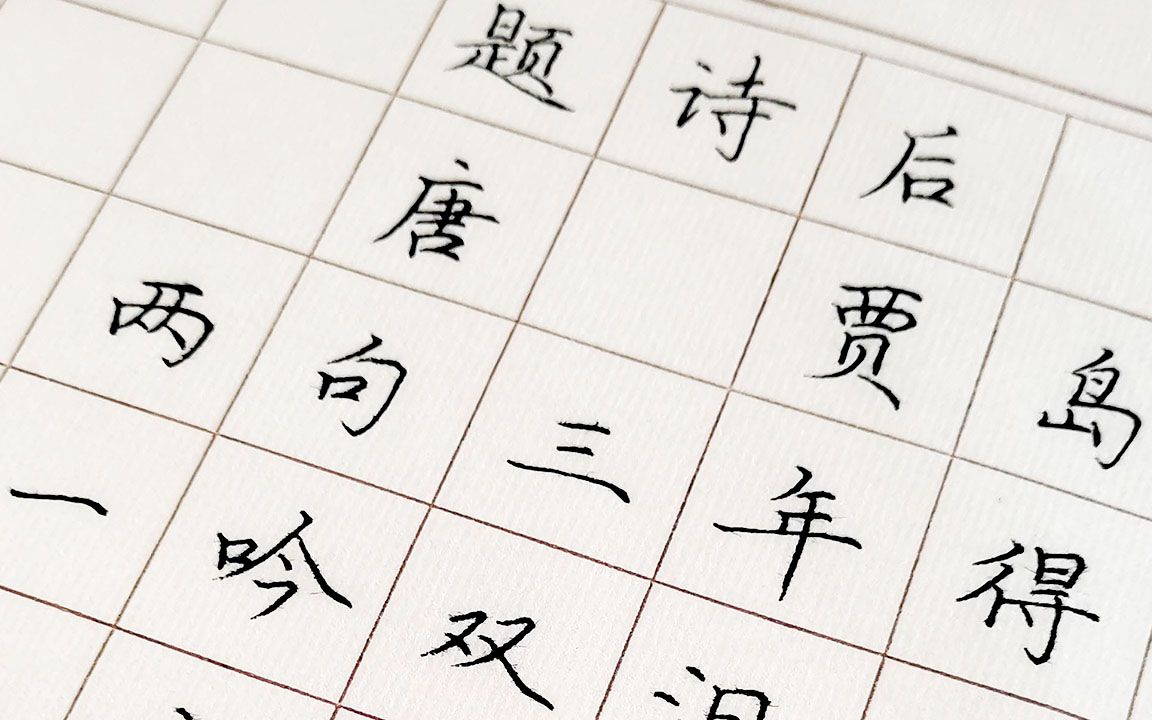 题诗后
唐 贾岛
两句三年得
一吟双泪